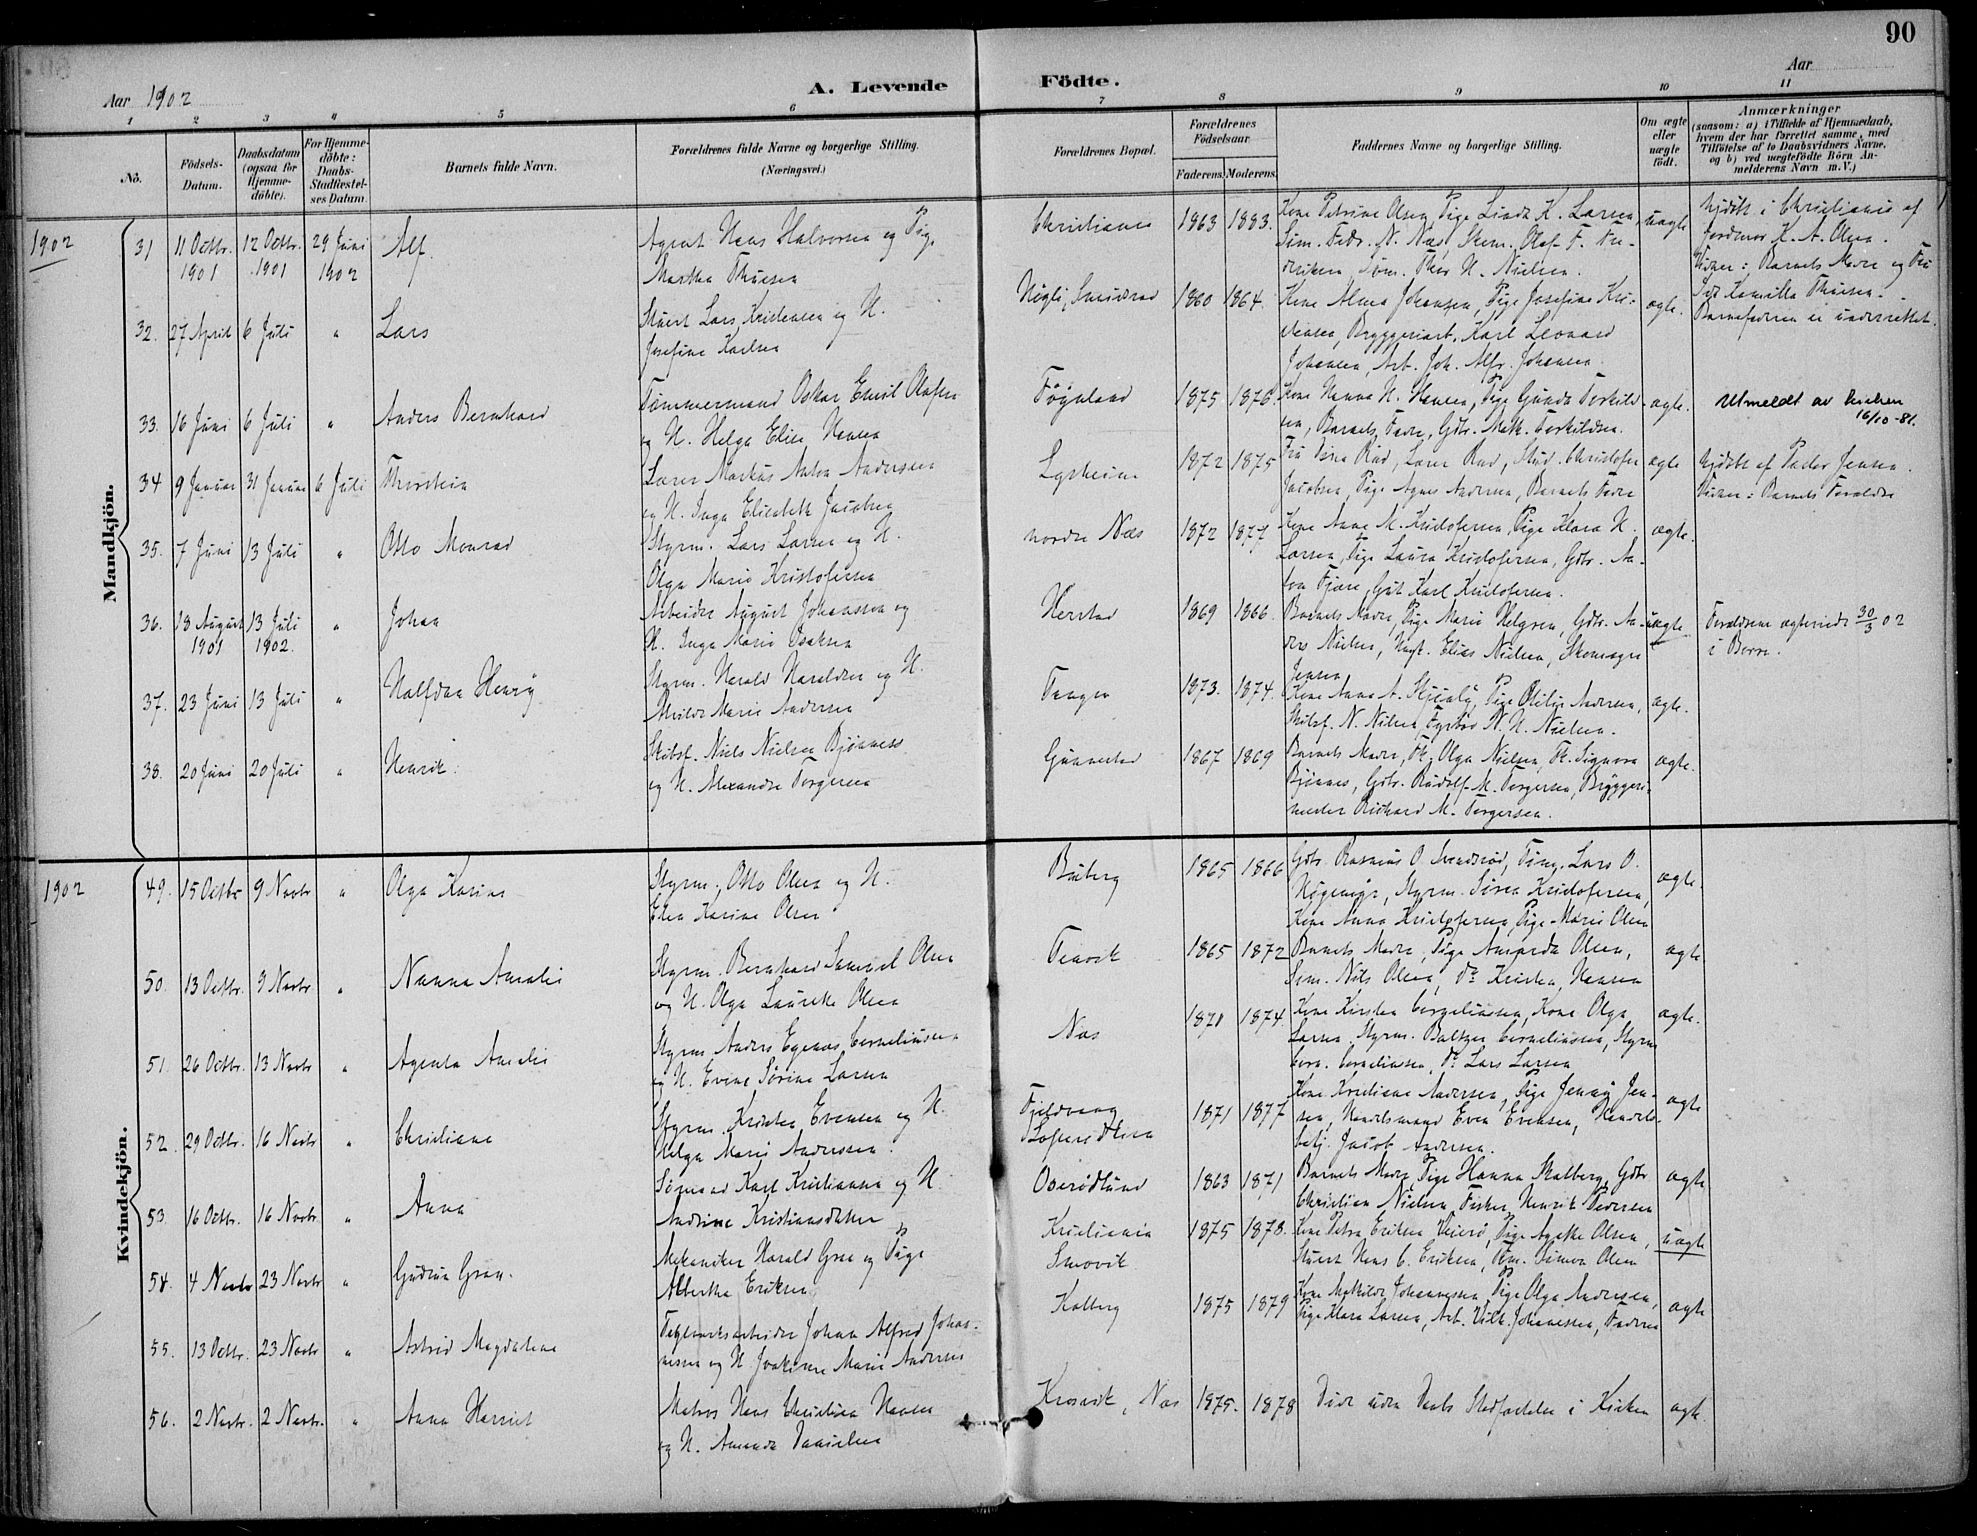 90
Aar 1902
A. Levende Födte.
Aar
1 2 3 4 5 6 7 8 9 10 11
No.
Födsels-Datum.
Daabsdatum (ogsaa for Hjemme-döbte).
For Hjemme-döbte: Daabs-Stadfæstel-ses Datum
Barnets fulde Navn.
Forældrenes fulde Navne og borgerlige Stilling. (Næringsvei.)
Forældrenes Bopæl.
Forældrenes Födselsaar
Faderens. Moderens.
Faddernes Navne og borgerlige Stilling.
Om ægte eller uægte födt.
Anmærkninger
(saasom: a) i Tilfælde af Hjemmedaab, hvem der har forrettet samme, med Tilföielse af to Daabsvidners Navne, og b) ved uægtefödte Börn An-melderens Navn m.V.)
Mandkjön.
1902
31 11 Octbr. 1901 12 Octbr. 1901 29 Juni 1902 Alf.
Agent Hans Halvorsen og Pige
Martha Thuesen
Christiania 1863 1883.
Kone Petrine Olsen, Pige Linda K. Larsen,
Olaf F. Fre-
deriksen, Thor N. Nielsen.
uægte
Hjdbt i Christiania af
Jordmor K. A. Olsen.
Vidner: Barnets Moder og Frø
Kamilla Thuesen.
Barnefaderen er underrettet.
32. 27 April 6 Juli " Lars
Stuert Lars Kristensen og H.
Josefine Karlsen
1860 1864.
Kone Alma Johansen, Pige Josefine Kri-
stensen, Bryggeriarb. Karl Leonard
Johansen, Arb. Joh. Alfr. Johansen.
ægte.
33. 16 Juni 6 Juli " Anders Bernhard
Tømmermand Oskar Emil Olafsen
og H. Helga Elise Hansen
Føynland 1875 1876.
Kone Hanna H. Hansen, Pige Gunda Torkild-
sen, Barnets Fader, Gdbr. Math. Torkildsen.
ægte.
Utmeldt av kirken
16/10-81.
34 9 Januar 31 Januar 6 Juli Thorstein
Lærer Markus Anton Andersen
og H. Inga Elisabeth Jacobsen
Lysheim 1872 1875
Rød, Lærer Rød, Stud. Christofer
Jacobsen, Pige Agnes Andersen, Barnets Fader
ægte
Hjdbt af Peder Jensen.
Vidner: Barnets Forældre
35. 7 Juni 13 Juli " Otto Monrad
Styrm. Lars Larsen og H.
Olga Marie Kristofersen
nordre Næs 1872 1877
Kone Anne M. Kristofersen, Pige Klara H.
Larsen, Pige Laura Kristofersen, Gdbr. An-
ton Fjære, Gut Karl Kristofersen.
ægte.
36. 18 August 1901 13 Juli 1902. " Johan
Arbeider August Johanssen og
H. Inga Marie Isaksen
Herstad 1869 1866.
Barnets Moder, Pige Marie Helgren, Gdbr. An-
ders Nielsen, Ungk. Elias Nielsen, Skomager
Jensen
uægte.
Forældrene ægteviede 30/3 02
i Borre.
37. 23 Juni 13 Juli " Halfdan Henry
Styrm. Harald Haraldsen og H.
Marie Andersen
Tangen 1873. 1874.
Kone Anna A. Pige Otilie Andersen,
Skibsf. N. Nielsen, N. H. Nielsen.
ægte.
38. 20 Juni 20 Juli " Henrik.
Skibsf. Niels Nielsen Bjønness
og H. Alexandra Torgersen
Gunnestad 1867 1869
Barnets Moder, Fk. Olga Nielsen, Fk. Signora
Bjønnes, Gdbr. Rudolf M. Torgersen, Bryggeri-
mester Richard M. Torgersen.
ægte.
Kvindekjön.
1902
49. 15 Octbr 9 Novbr " Olga Karine
Styrm. Otto Olsen og H.
Elen Karine Olsen
Buberg 1865 1866
Gdbr. Rasmus O. Svendsrød, Tømm. Lars O.
Styrm. Søren Kristofersen,
Kone Anna Kristofersen, Pige Marie Olsen
ægte.
50. 13 Octbr. 9 Novbr " Nanna Amalie
Styrm. Bernhard Samuel Olsen
og H. Olga Laurette Olsen
Tenvik 1865 1872
Barnets Moder, Pige Amanda Olsen,
Søm. Nils Olsen, do Kristen Hansen
ægte.
51. 26 Octbr. 13 Novbr " Agenta Amalie
Styrm. Anders Egenæs Corneliussen
og H. Evine Sørine Larsen
Næs 1871 1874.
Kone Kirsten Corneliussen, Kone Olga
Larsen, Styrm. Baltzer Corneliussen, Styrm
Corn. Corneliussen, do Lars Larsen
ægte.
52. 29 Octbr. 16 Novbr " Christiane
Styrm. Kristen Evensen og H.
Helga Marie Anderssen.
Fjeldvang 1871 1877
Kone Kristiane Andersen, Pige Jenny Jen-
sen, Handelsmand Even Evensen, Handels-
betj. Jacob Andersen.
ægte
53. 16 Octbr. 16 Novbr " Anna
Sømand Karl Kristiansen og H.
Andrine Kristiansdatter
Oserødlund 1863 1871
Barnets Moder, Pige Hanna Skalberg, Gdbr
Christian Nielsen, Fisker Henrik Pedersen
ægte
54. 4 Novbr 23 Novbr " Gudrun Gran.
Mekaniker Harald Gran og Pige
Albertha Eriksen
Kristiania
Snovik 1875 1878.
Kone Petra Eriksen Veierø, Pige Agathe Olsen,
Stuert Hans C. Eriksen, Tøm. Simon Olsen
uægte
55. 13 Octbr. 23 Novbr " Astrid Magdalene
Teglverksarbeider Johan Alfred Johan-
nessen og H. Joakime Marie Andersen
Kalberg 1875 1879
Kone Mathilde Johannessen, Pige Olga Andersen,
Pige Klara Larsen, Arb. Vilh. Johannessen, Faderen
ægte
56. 2 Novbr. 2 Novbr. " Anna Harriet
Matros Hans Christian Hansen
og H. Amanda Danielsen
Krosvik, Næs 1875. 1878
Død uden Daabs Stadfæstelse i Kirken
ægte.